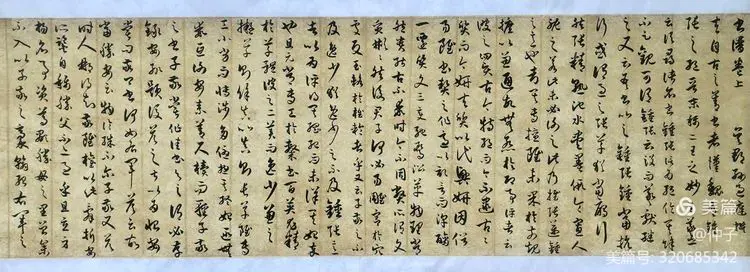 書譜卷上 吳郡孫過庭撰
夫自古之善書者漢魏有鍾
張之絕晉末稱二王之妙王羲之
云頃尋諸名書鍾張信為絕倫其餘
不足觀可謂鍾張云沒而羲獻繼
之又云吾書比之鍾張鍾當抗
行或謂過之張草猶當雁行
然張精熟池水盡墨假令寡人
耽之若此未必謝之此乃推張邁鍾
之意也考其專擅雖未果於前規
摭以兼通故無慚於即事評者云
彼之四賢古今特絕而今不逮古古
質而今妍夫質以代興妍因俗
易雖書契之作適以記言而淳醨
一遷質文三變馳騖沿革物理常
然貴能古不乖時今不同弊所謂文
質彬彬然後君子何必易雕宮於穴
處反玉輅於椎輪者乎又云子敬之不
及逸少猶逸少之不及鍾張意
者以為評得其綱紀而未詳其始卒
也且元常專工於隸書百英尤精
於草體彼之二美而逸少兼之
擬草則餘真比真則長草雖專
工小劣而博涉多優揔其終始匪無
乖互謝安素善尺牘而輕子敬
之書子敬嘗作佳書與之謂必存
錄安輒題後答之甚以為恨安
嘗問敬卿書何如右軍答云故
當勝安云物論殊不爾子敬又答
時人那得知敬雖權以此辭折安
所鑒自稱勝父不亦過乎且立身
揚名事資尊顯勝母之里曾參
不入以子敬之豪翰紹右軍之
美篇
@仲子
美篇号: 320685342